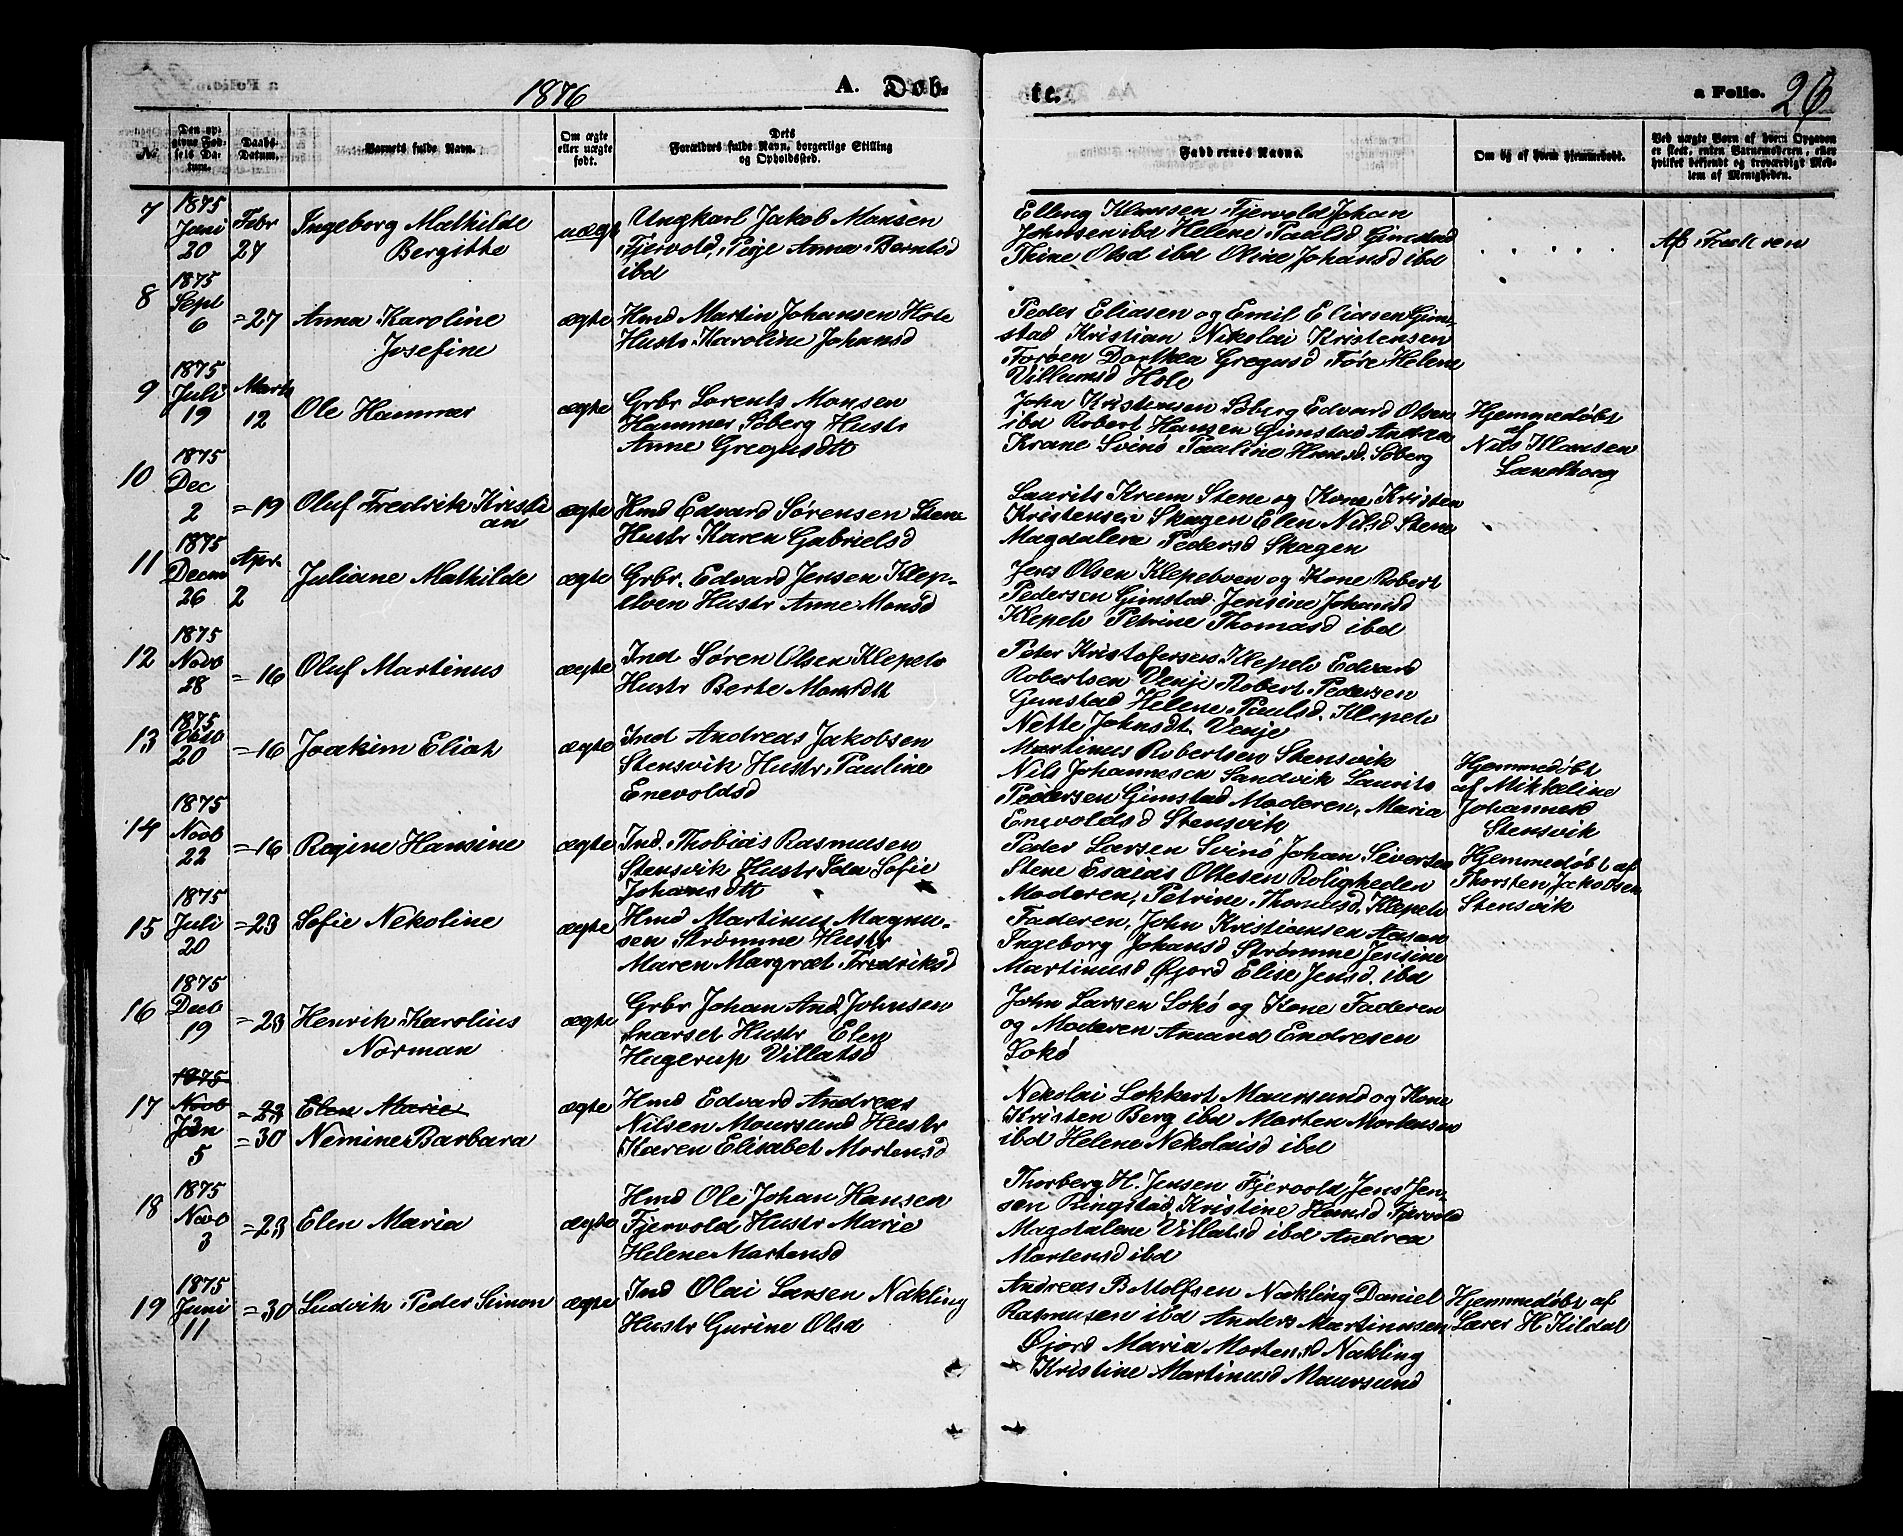 1876
A. Døb-
te.
a Folio. 26
No
Den op-
givne Fød-
sels Da-
tum.
Daabs-
Datum.
Barnets fulde Navn.
Om ægte
eller uægte
født.
Dets
Forældres fulde Navn, borgerlige Stilling
og Opholdssted.
Faddernes Navne.
Om og af hvem hjemmedøbt.
Ved uægte Børn af hvem Opgaven
er skeet, enten Barnemoderen, eller
hvilket bekjendt og troværdigt Med-
lem af Menigheden.
7
1875
Juni
20
Febr
27
Ingeborg Mathilde
Bergitte
uægt
Ungkarl Jakob Monsen
Fjervold, Pige Anna Berntsd
ibd
Elling Klausen Fjervold Johan
Johnsen ibd Helene Paulsd Gimstad
Thine Olsd ibd Oline Johansd ibd
Af Faderen
8
1875
Sept
6
= 27
Anna Karoline
Josefine
ægte
Hmd Martin Johansen Hole
Hustr Karoline Johansd
Peder Eliasen og Emil Eliasen Gim-
stad Kristian Nikolai Kristensen
Forøen Dorthea Gregusd Føre Helene
Villumsd Hole
9
1875
Juli
19
Marts
12
Ole Hammer
ægte
Grbr Lorents Monsen
Hammer Søberg Hustr
Anne Gregusdtt
John Kristensen Søberg Edvard Olsen
ibd Robert Hansen Gimstad Andrea
Krane Svinø Pauline Hansd Søberg
Hjemmedøbt
af
Nils Klausen
Sandhoug
10
1875
Dec
2
= 19
Oluf Fredrik Kristi
an
ægte
Hmd Edvard Sørensen Stene
Hustr Karen Gabrielsd
Laurits Krum Stene og Kone Kristen
Kristensen Skagen Elen Nilsd Stene
Magdalena Pedersd Skagen
11
1875
Decm
26
Apr.
2
Juliane Mathilde
ægte
Grbr. Edvard Jensen Klep-
elven Hustr Anne Monsd
Jens Olsen Klepelven og Kone Robert
Pedersen Gimstad Jensine Johansd
Klepelv Petrine Thomasd ibd
12
1875
Novb
28
= 16
Oluf Martinus
ægte
Ind Søren Olsen Klepelv
Hustr Berte Monsdtt
Peter Kristofersen Klepelv Edvard
Robertsen Venje Robert Pedersen
Gimstad Helene Paulsd. Klepelv
Nette Johnsdt Venje
13
1875
Oktb
20
= 16
Joakim Eliah
ægte
Ind Andreas Jakobsen
Stensvik Hustr. Pauline
Enevoldsd
Martinus Robertsen Stensvik
Nils Johannesen Sandvik Laurits
Pedersen Gimstad Moderen, Maria
Enevoldsd Stensvik
Hjemmedøbt
af Mikkeline
Johannesd
Stensvik
14
1875
Novb
22
= 16
Regine Hansine
ægte
Ind. Thobias Rasmusen
Stensvik Hustr Ida Sofie
Johansdtt
Peder Larsen Svinø Johan Sivertsen
Stene Esaias Ottesen Roligheden
Moderen, Petrine Thomasd. Klepelv
Hjemmedøbt af
Thorsten Jakobsen
Stensvik
15
1875
Juli
20
= 23
Sofie Nekoline
ægte
Hmd Martinus Magnu-
sen Strømme Hustr
Maren Margret Fredriksd
Faderen, John Kristiansen Aasan
Ingeborg Johansd Strømme Jensine
Martinusd Øjord Elise Jensd. ibd
16
1875
Decb
19
= 23
Henrik Karolius
Norman
ægte
Grbr Johan And Johnsen
Snarset Hustr Elen
Hagerup Villatsd
John Larsen Sokø og Kone Faderen
og Moderen Amund Endresen
Sokø
17
1875
Novb
Jan
5
= 23
= 30
Elen Marie
Nemine Barbara
ægte
Hmd Edvard Andreas
Nilsen Maursund Hustr
Karen Elisabet Mortensd
Nekolai Lokkert Maursund og Kone
Kristen Berg ibd Morten Mortensen
ibd Helene Nekolaisd ibd
18
1875
Novb
3
= 23
Elen Maria
ægte
Hmd Ole Johan Hansen
Fjervold Hustr Marie
Helene Martensd
Thorberg H. Jensen Fjervold Jens Jen-
sen Ringstad, Kristine Hansd Fjervold
Magdalene Villatsd ibd Andrea
Martensd ibd
19
1875
Juni
11
= 30
Ludvik Peder Simon
ægte
Ind Olai Larsen Nækling
Hustr Gurine Olsd
Andreas B Molfsen Nækling Daniel
Rasmusen ibd Anders Martinusen
Øjord Maria Mortensd Nækling
Kristine Martinusd Maursund
Hjemmedøbt af
Lærer H Kildal